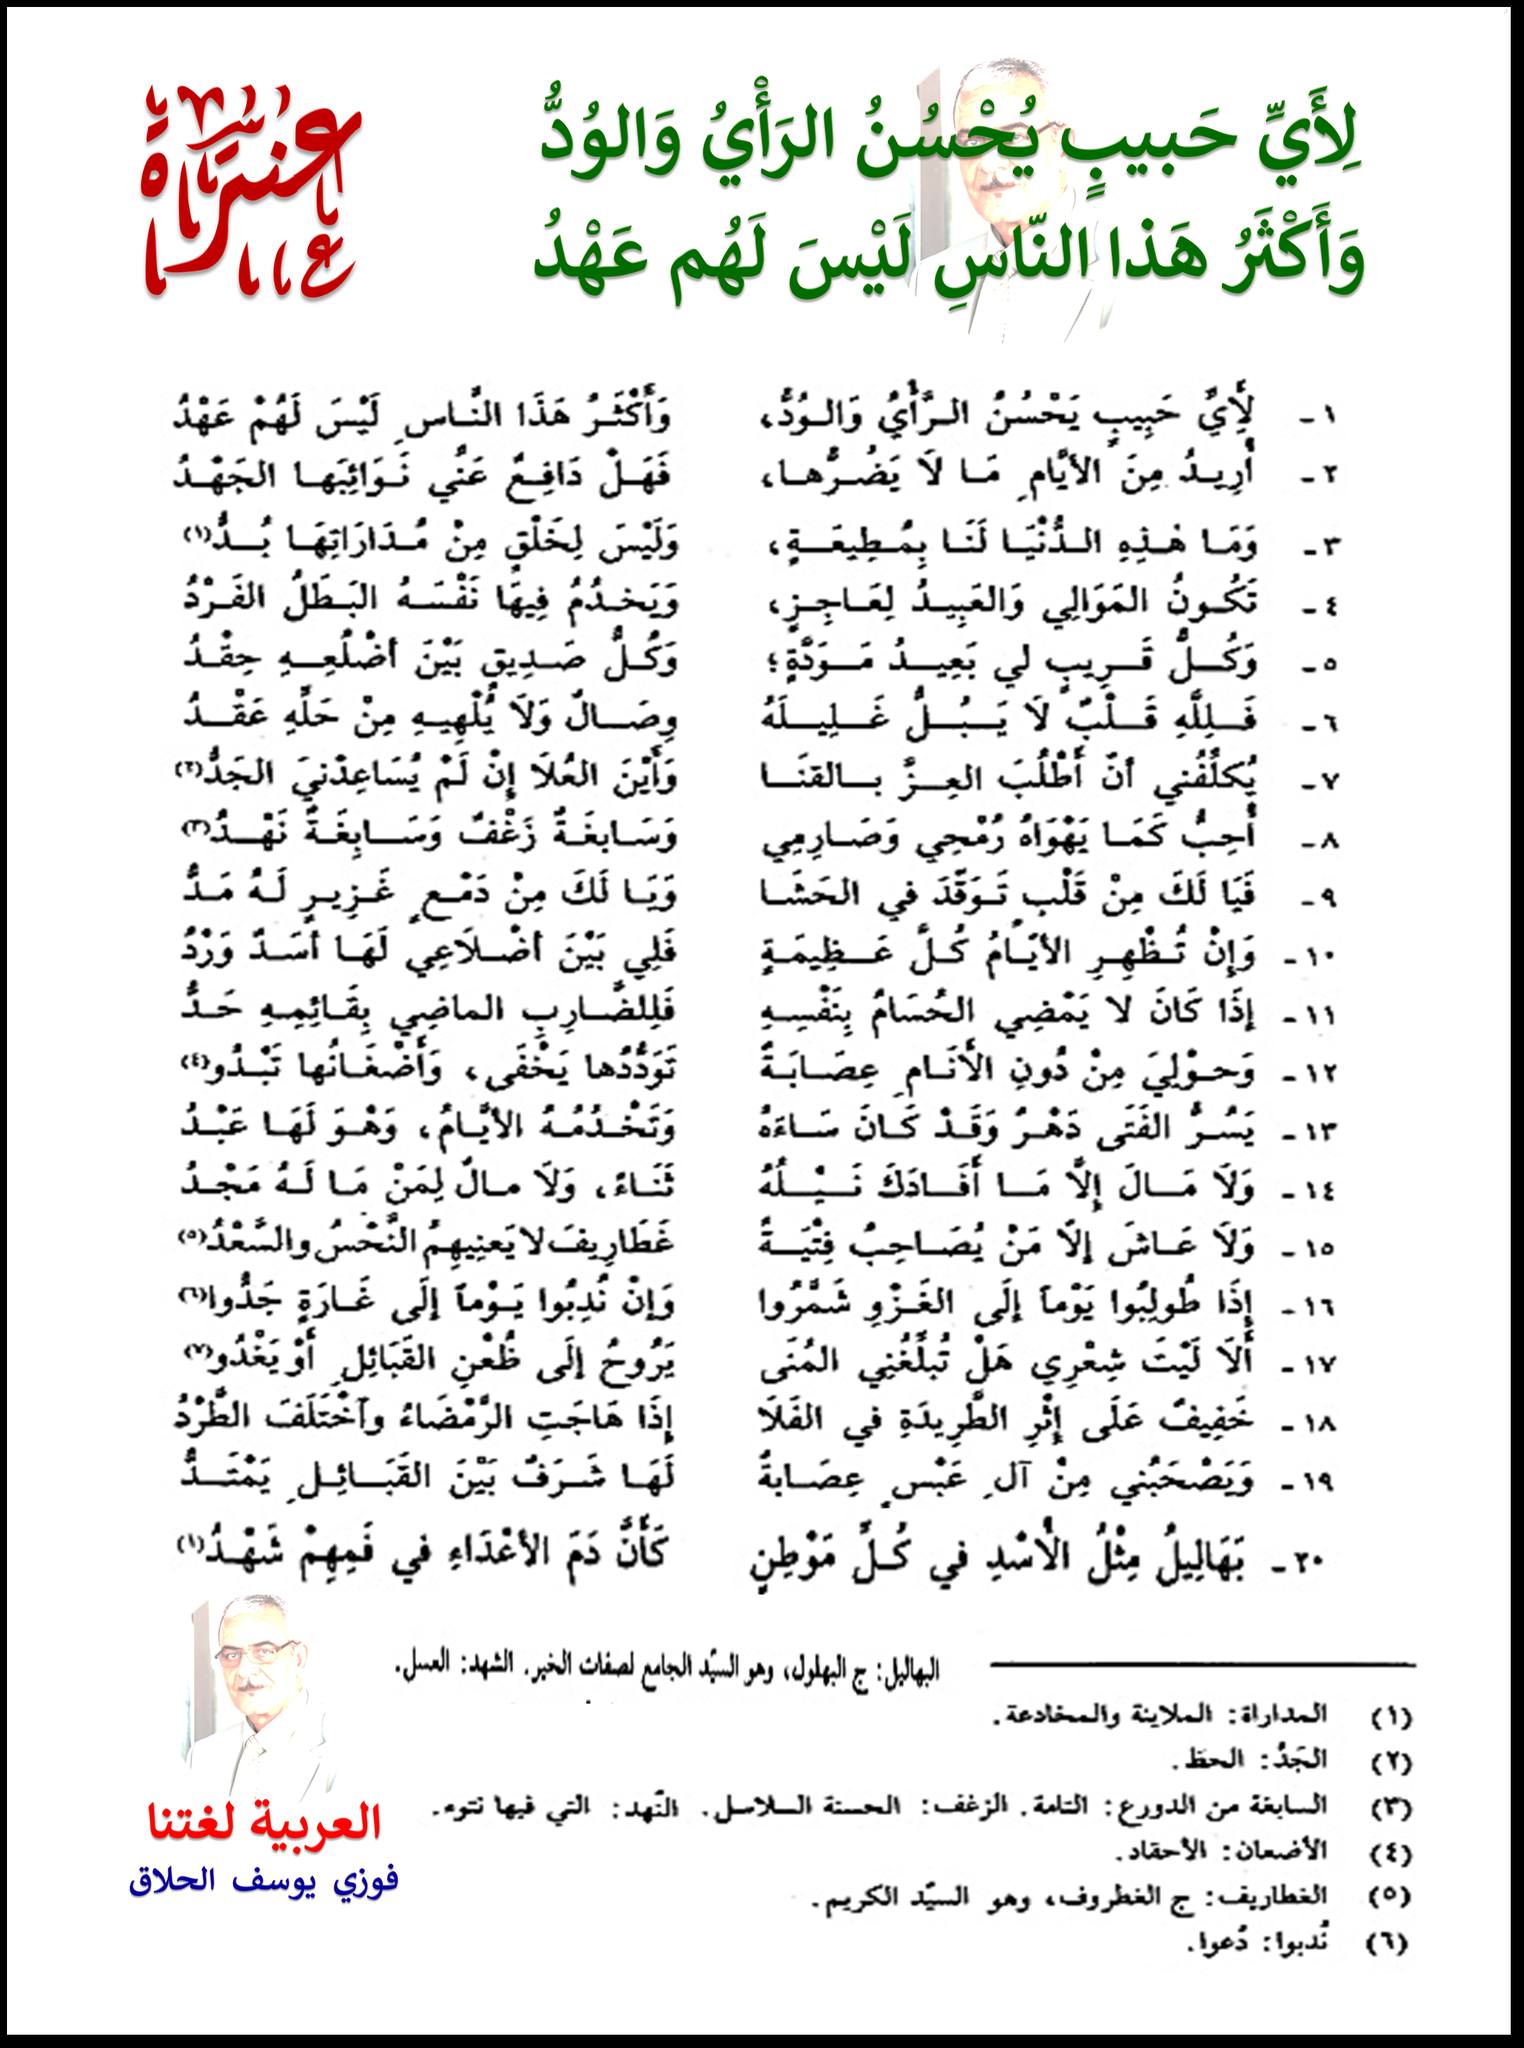 عنترة
لِأَيِّ حَبيبٍ يُحْسُنُ الرَأْيُ وَالوُدُّ
وَأَكْثَرُ هَذا النّاسِ لَيْسَ لَهُم عَهْدُ
١ - لِأَيِّ حَبِيبٍ يَحْسُنُ الرَّأْيُ وَالوُدُّ، وَأَكْثَرُ هَذَا النَّاسِ لَيْسَ لَهُمْ عَهْدُ
٢ - أُرِيدُ مِنَ الأيَّامِ مَا لَا يَضُرُّها، فَهَلْ دَافِعٌ عَنِّي نَوَائِبَها الجَهْدُ
٣ - وَمَا هٰذِهِ الدُّنْيَا لَنَا بِمُطِيعَةٍ، وَلَيْسَ لِخَلْقٍ مِنْ مُدَارَاتِهَا بُدُّ(١)
٤ - تَكُونُ المَوَالِي وَالعَبِيدُ لِعَاجِزٍ، وَيَخدُمُ فِيهَا نَفْسَهُ البَطَلُ الفَرْدُ
٥ - وَكُلُّ قَرِيبٍ لي بَعِيدُ مَوَدَّةٍ؛ وَكُلُّ صَدِيقٍ بَيْنَ أضْلُعِهِ حِقْدُ
٦ - فَلِلَّهِ قَلْبٌ لَا يَبُلُّ غَلِيلَهُ وِصَالٌ وَلَا يُلْهِيهِ مِنْ حَلِّهِ عَقْدُ
٧ - يُكلِّفُني أنْ أَطْلُبَ العِزَّ بالقنَا وَأَيْنَ العُلَا إِنْ لَمْ يُسَاعِدْنيَ الجَدُّ(٢)
٨ - أُحِبُّ كَمَا يَهْوَاهُ رُمْحِي وَصَارِمِي وَسَابغَةٌ زَغْفٌ وَسَابِغَةٌ نَهْدُ(٣)
٩ - فَيَا لَكَ مِنْ قَلْبٍ تَوَقَّدَ في الحَشَا وَيَا لَكَ مِنْ دَمْعٍ غَزِيرٍ لَهُ مَدُّ
١٠ - وَإِنْ تُظْهِرِ الأيّامُ كُلَّ عَظِيمَةٍ فَلِي بَيْنَ أضْلَاعِي لَهَا أسَدٌ وَرْدُ
١١ - إِذَا كَانَ لا يَمْضِي الحُسَامُ بِنَفْسِهِ فَلِلضَّارِبِ الماضِي بِقَائِمِهِ حَدُّ
١٢ - وَحوْلِيَ مِنْ دُونِ الأَنَامِ عِصَابَةٌ تَوَدُّدُها يَخْفَى، وَأَضْغَانُها تَبْدُو(٤)
١٣ - يَسُرُّ الفَتَى دَهْرٌ وَقَدْ كَانَ سَاءَهُ وَتَخْدُمُهُ الأيَّامُ، وَهْوَ لَهَا عَبْدُ
١٤ - وَلَا مَالَ إِلَّا مَا أَفَادَكَ نَيْلُهُ ثَنَاءً، وَلَا مالٌ لِمَنْ مَا لَهُ مَجْدُ
١٥ - وَلَا عَاشَ إلّا مَنْ يُصَاحِبُ فِتْيَةً غَطَارِيفَ لا يَعنِيهِمُ النَّحْسُ والسَّعْدُ(٥)
١٦ - إِذَا طُولِبُوا يَوْماً إلَى الغَزْوِ شَمَّرُوا وَإنْ نُدِبُوا يَوْماً إلَى غَارَةٍ جَدُّوا(٦)
١٧ - أَلَا لَيْتَ شِعْرِي هَلْ تُبلِّغُنِي المُنَى يَرُوحُ إلَى ظُعْنِ القَبَائِلِ أَوْ يَغْدُو(٧)
١٨ - خَفِيفٌ عَلَى إثْرِ الطَّرِيدَةِ في الفَلَا إذَا هَاجَتِ الرَّمْضَاءُ وآخْتَلَفَ الطَّرْدُ
١٩ - وَيَصْحَبُني مِنْ آلِ عَبْسٍ عِصَابةٌ لَهَا شَرَفٌ بَيْنَ القَبَائِلِ يَمْتَدُّ
٢٠ - بَهَالِيلُ مِثْلُ الأُسْدِ في كُلِّ مَوْطِنٍ كَأَنَّ دَمَ الأعْدَاءِ في فَمِهِمْ شَهْدُ(١)
البهاليل: ج البهلول، وهو السيّد الجامع لصفات الخير. الشهد: العسل.
(١) المداراة: الملاينة والمخادعة.
(٢) الجَدُّ: الحظ.
(٣) السابغة من الدورع: التامة. الزغف: الحسنة السلاسل. النّهد: التي فيها نتوء.
(٤) الأضعان: الأحقاد.
(٥) الغطاريف: ج الغطروف، وهو السيّد الكريم.
(٦) نُدبوا: دُعوا.
العربية لغتنا
فوزي يوسف الحلاق